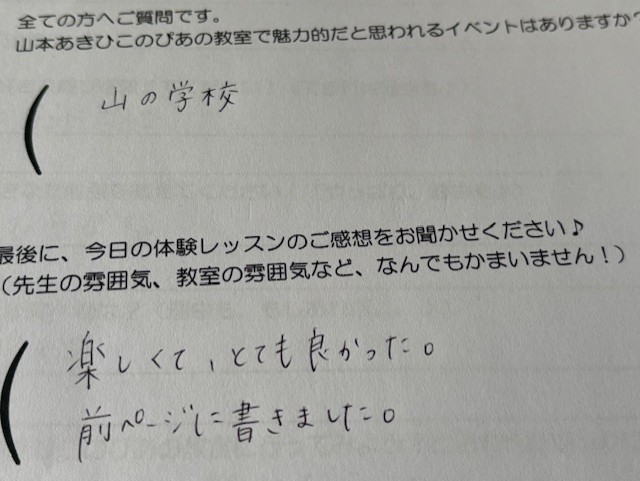 全ての方へご質問です。
山本あきひこのぴあの教室で魅力的だと思われるイベントはありますか?
山の学校
最後に、今日の体験レッスンのご感想をお聞かせください♪
(先生の雰囲気、教室の雰囲気など、なんでもかまいません!)
楽しくて、とても良かった。
前ページに書きました。